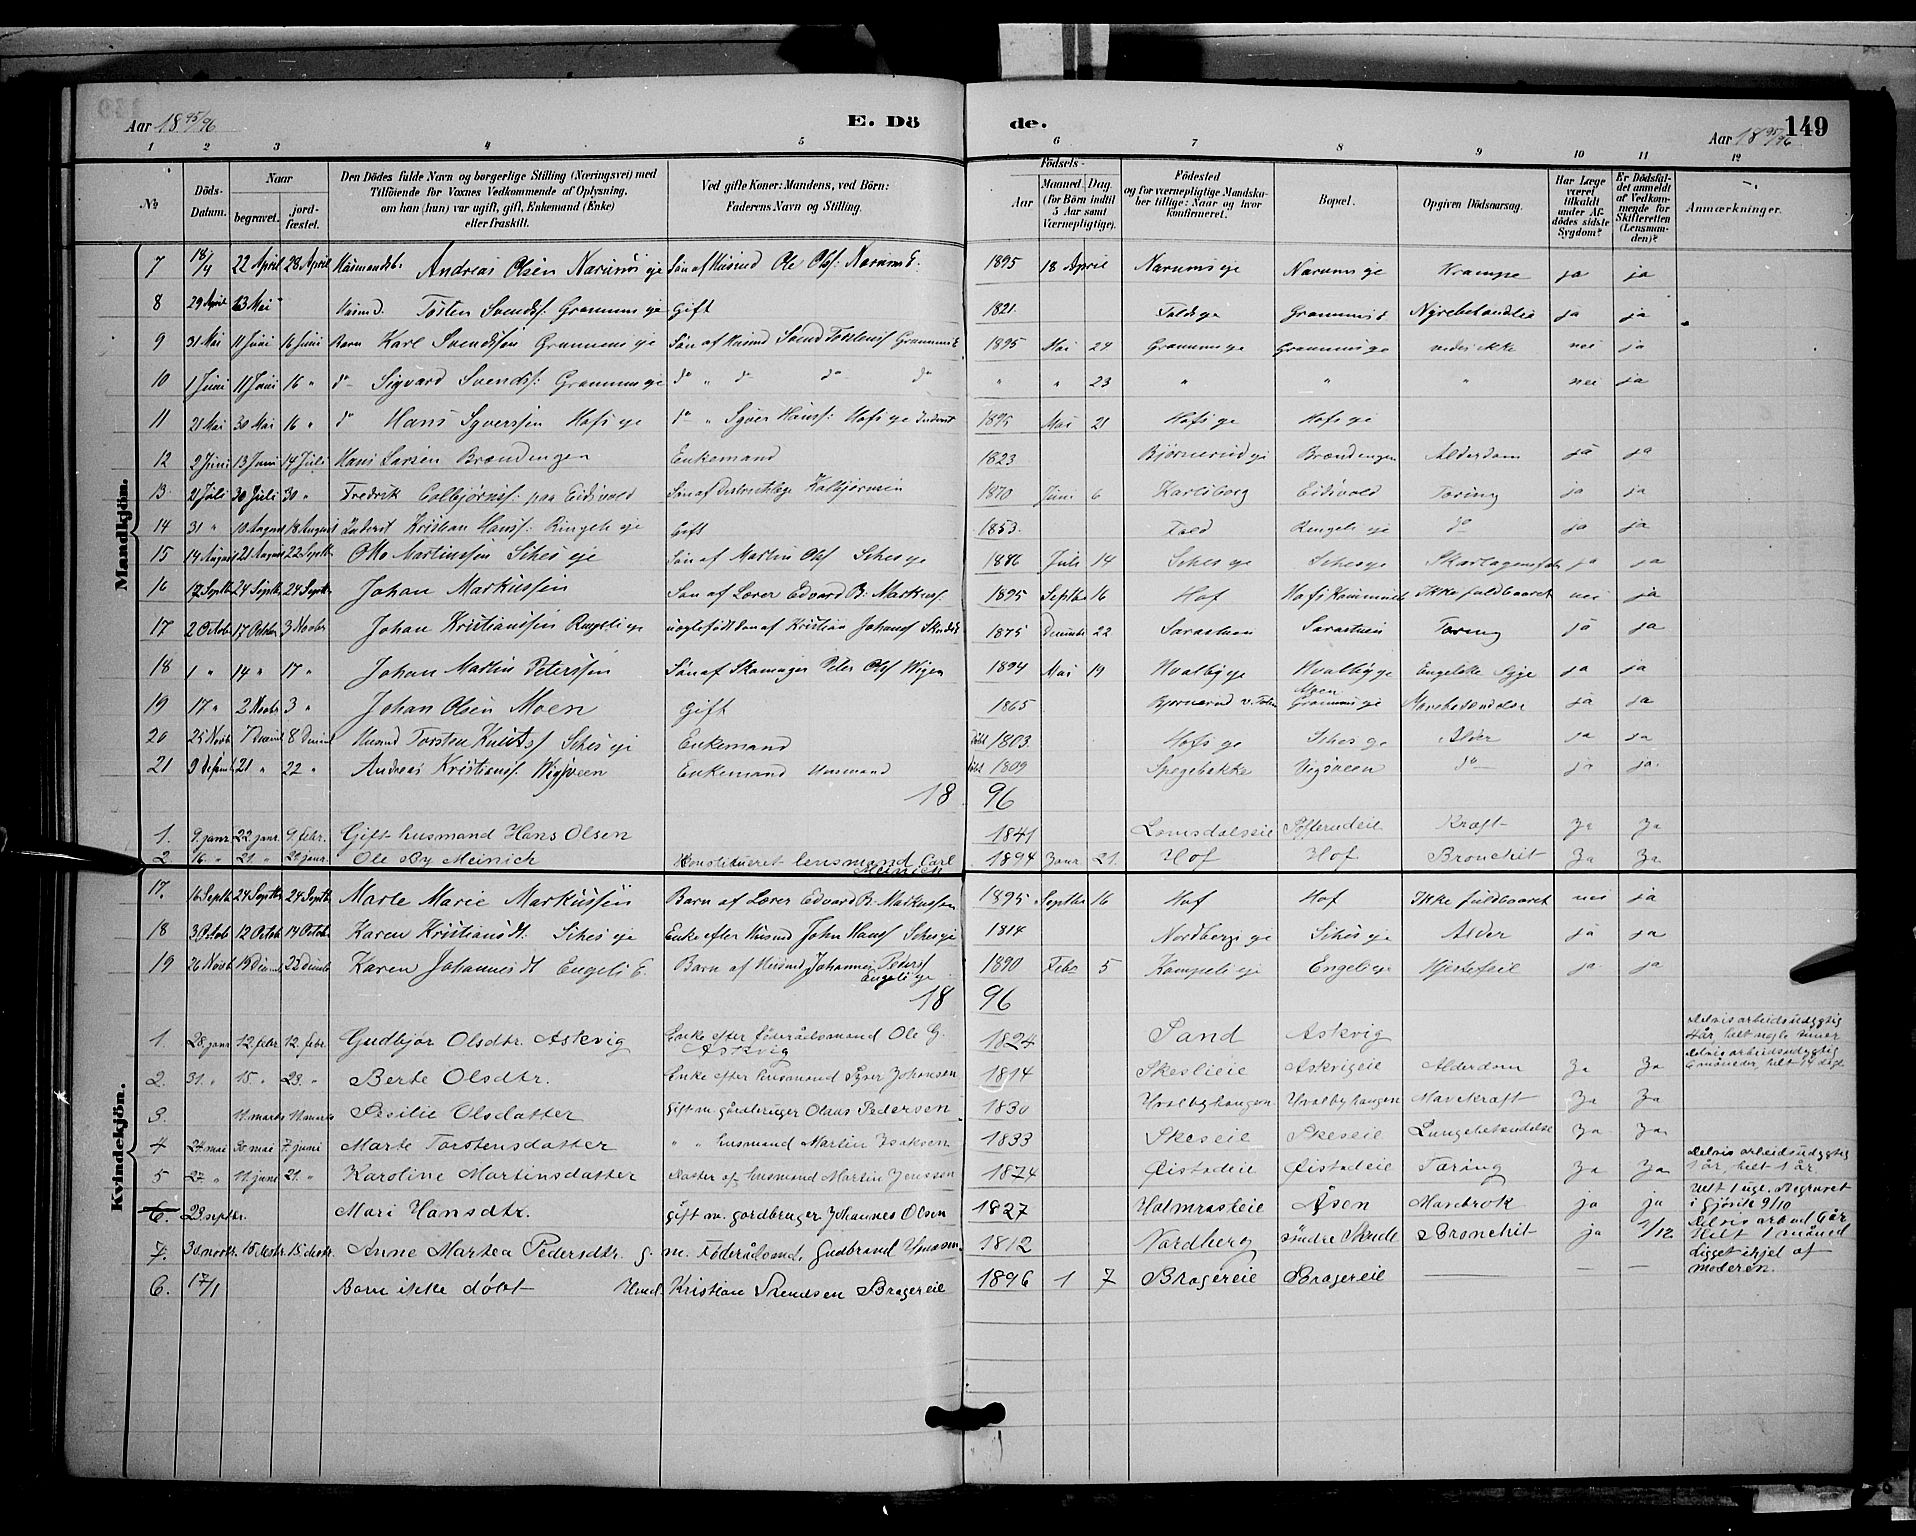 Aar 18 95/96 E. Dö de. Aar 18 95/96 149
1 2 3 4 5 6 7 8 9 10 11 12
No Döds-Datum. Naar begravet. jord-fæstet. Den Dödes fulde Navn og borgerlige Stilling (Næringsvei) med Tilföiende for Voxnes Vedkommende af Oplysning, om han (hun) var ugift, gift, Enkemand (Enke) eller fraskilt. Ved gifte Koner: Mandens, ved Börn: Faderens Navn og Stilling. Födsels- Aar Maaned Dag (for Börn indtil 5 Aar samt Værnepligtige). Födested og for værnepligtige Mandskaber tillige: Naar og hvor konfirmeret. Bopæl. Opgiven Dödsaarsag. Har Læge været tilkaldt under Afdödes sidste Sygdom? Er Dödsfaldet anmeldt af Vedkommende for Skifteretten (Lensmanden)? Anmærkninger.
Mandkjön.
7 18/4 22 April 28 April Andreas Olsen Narums eje Søn af Husmd Ole Olsf: Narums E. 1895 18 April Narums eje Narums eje Krampe ja ja
8 29 April 13 Mai Husmd. Tosten Svendsf: Grammns eje Gift 1821. ja ja
9 31 Mai 11 Juni 16 Juni Barn Karl Svendssen Søn af Husmd Svend Torstensf 1895 Mai 24 vides ikke nei ja
10 1 Juni 11 Juni 16 " do Sigvard Svendsf: do " do do do " " 23 " " " nei ja
11 21 Mai 30 Mai 16 " do Hans Syverssen Hofs eje do " Syver Hansf: Hofs eje Inderst 1895 Mai 21 Hofs eje Hofs eje
12 2 Juni 13 Juni 14 Juli Hans Larsen Brændengen Enkemand 1823 Bjørnerud eje Brændengen Alderdom ja ja
13. 21 Juli 30 Juli 30 " Fredrik Colbjørnsf: paa Eidsvold Søn af Distriktslæge Kolbjørnsen 1870 Juni 6 Karlsborg Eidsvold Tæring ja ja
14 31 " 10 August 18 August Inderst Kristian Hansf: Ringeli eje Gift 1853. Fald Ringeli eje do ja ja
15 14 August 21 August 22 Septbr Otto Martinssen Skies eje Søn af Martin Olsf 1886 Juli 14 Skarlagensfeber ja ja
16 17 Septbr 24 Septbr 24 Septbr Johan Markussen Søn af Lærer Edvard B: Markusf. 1895 Septbr 16 Hof Ikke fuldbaaret nei ja
17 2 October 17 October 3 Novbr Johan Kristianssen Ringeli eje uægtefødt Søn af Kristian Johansf 1875 Decembr 22 Sarastuen Sarastuen Tæring ja ja
18 1 " 14 " 17 " Johan Martin Peterssen Søn af Skomager Peter Olsf Wigen 1894 Mai 19 Hvalby eje Hvalby eje Engelske Syge ja ja
19 17 " 2 Novbr 3 " Johan Olsen Moen Gift 1865 Bjørnerud v. Toten Moen ja ja
20 25 Novbr 7 Decembr 8 Decembr Husmd Torsten Knutsf Enkemand døbt 1803. Hofs eje Alder ja ja
21 9 Decembr 21 " 22 " Andreas Kristiansf. Wigsveen Enkemand Husmand døbt 1809 Spegebakke Vigsveen do ja ja
18 96
1. 9. janr 22 janr 9. febr. Gift husmand Hans Olsen 1841 Lomsdalseie Kræft Ja Ja
2 16. " 21. " 29. janr. Ole By Meinich Konstitueret lensmand Carl Meinich 1894 Janr 21. Hof Hof Bronchit Ja Ja
Kvindekjön.
17. 16 Septbr 24 Septbr 24 Septbr Marte Marie Markussen Barn af Lærer Edvard B. Markussen 1895. Septbr 16 Hof Hof Ikke fuldbaaret nei ja
18 3 Octob 12 Octob 14 Octobr Karen Kristiansdt: Enke efter Husmd John Hansf 1814 Nordbergs eje Alder ja ja
19 26 Novbr 19 Decmbr 23 Decmbr Karen Johannesdt Engeli E. Barn af Husmd Johannes Pedersf Engeli eje 1890 Febr 5 Kampeli eje Engeli eje Hjertefeil ja ja
18 96
1. 28. janr 12. febr. 12. febr. Gudbjør Olsdtr. Askvig Enke efter føderådsmand Ole G. Askvig 1824 Sand Askvig Delvis arbeidsudygtig 4 år, helt nogle timer
2. 31. " 15. " 23. " Berte Olsdtr. Enke efter husmand Syver Johansen 1814 Skeslieie Askvigeie Alderdom Ja Ja Delvis arbeidsudygtig 6 måneder, helt 14 dage
3. 11. marts 11 marts Pæsilie Olsdatter Gift m. gårdbruger Olaus Pedersen 1830 Hvalbyhaugen Hvalbyhaugen Mavekræft Ja Ja
4 24. mai 30. mai 7. juni Marte Torstensdatter " " husmand Martin Isaksen 1833 Skeseie Skeseie Lungebetændelse Ja Ja
5 27. " 11. june 21. " Karoline Martinsdatter Datter af husmand Martin Jenssen 1874 Øistadeie Øistadeie Tæring Ja Ja Delvis arbeidsudygtig 1 år, helt 1 år.
6. 23. septbr. Mari Hansdtr. gift m. gårdbruger Johannes Olsen 1827 Holmrasteie Åsen Mavebrok ja ja Helt 1 uge. Begravet i Gjøvik 9/10
7. 30. novbr. 15. decbr. 15. decbr. Anne Martea Pedersdtr. G. m. Føderådsmd. Gudbrand Hansen 1812 Nordberg søndre Skute Bronchit ja 1/12. Delvis arb.ud. 6 år Helt 1 måned
6. 17/1 Barn ikke døbt Husmd. Kristian Svendsen Bragereie 1896 1 7 Bragereie Bragereie — — — Ligget ihjel af moderen.